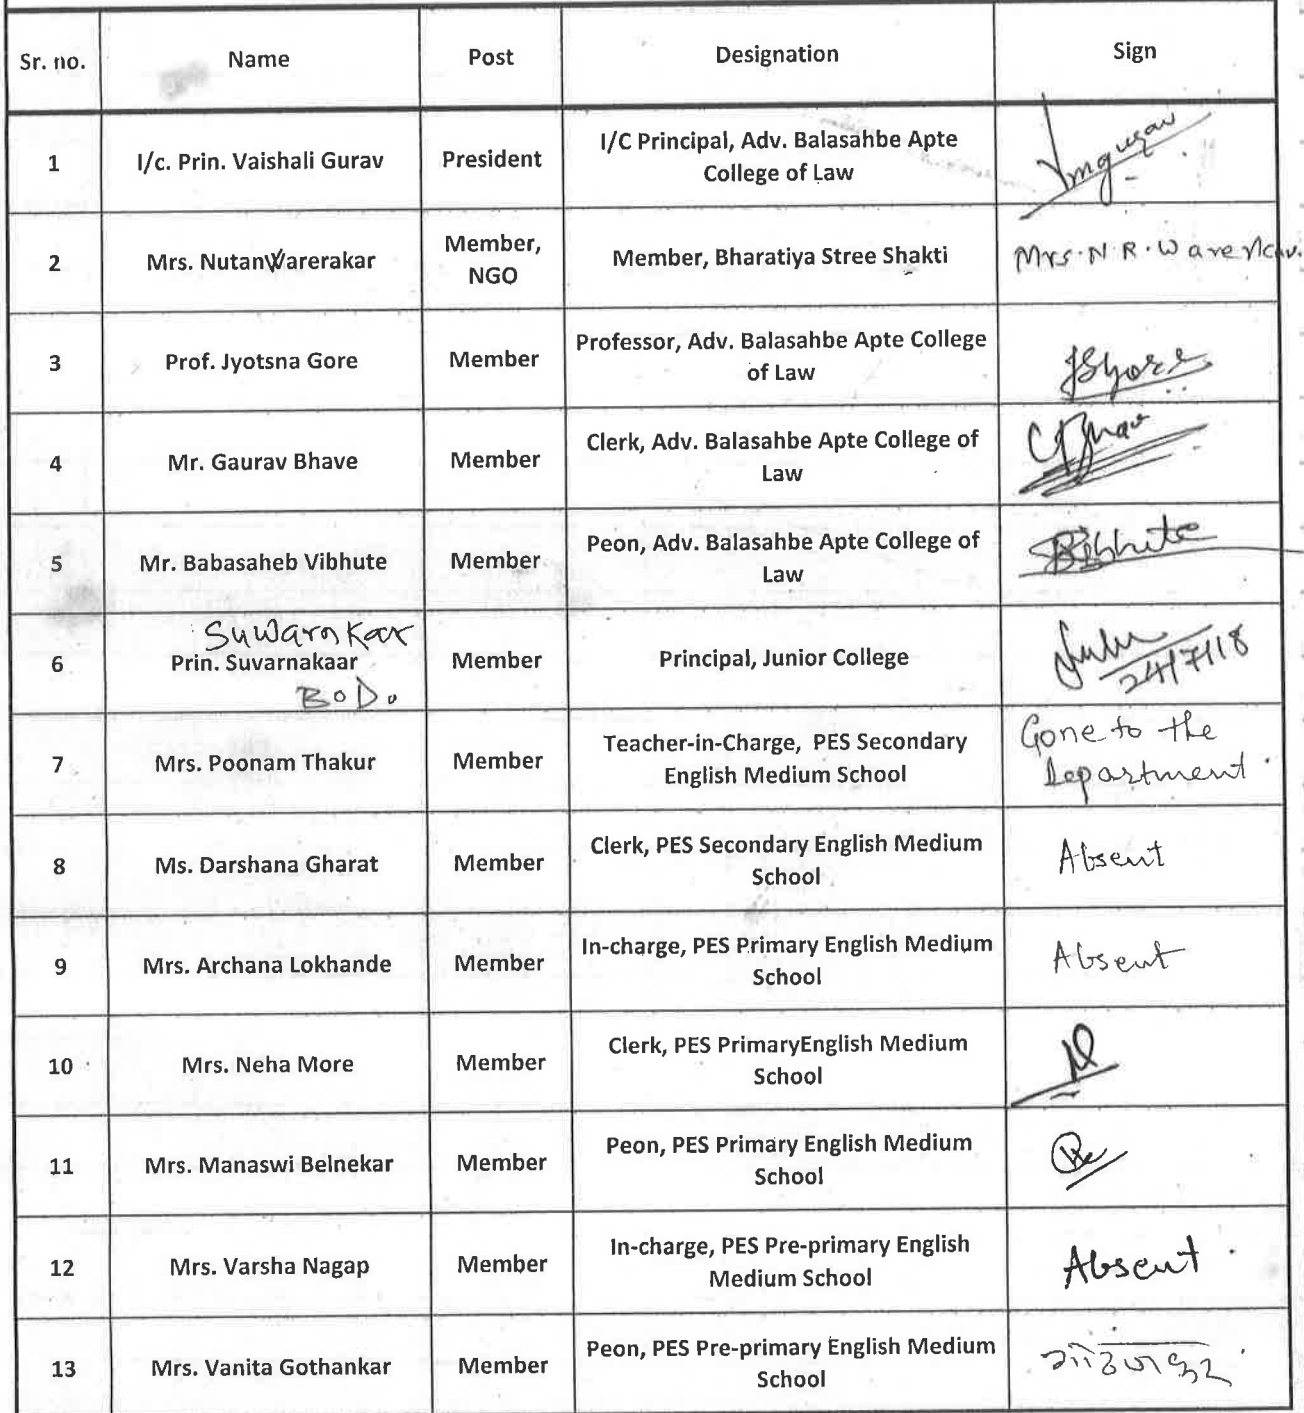 Sr. no. Name Post Designation Sign
1 I/c. Prin. Vaishali Gurav President I/C Principal, Adv. Balasahbe Apte
College of Law
Vmgurav
2 Mrs. Nutan Warerakar Member,
NGO
Member, Bharatiya Stree Shakti Mrs. N. R. Warerkar.
3 Prof. Jyotsna Gore Member Professor, Adv. Balasahbe Apte College
of Law
JSGore
4 Mr. Gaurav Bhave Member Clerk, Adv. Balasahbe Apte College of
Law
5 Mr. Babasaheb Vibhute Member Peon, Adv. Balasahbe Apte College of
Law
6 Suwarnkar
Prin. Suvarnakaar
B.D.
Member Principal, Junior College
24/7/18
7 Mrs. Poonam Thakur Member Teacher-in-Charge, PES Secondary
English Medium School
Gone to the
Department.
8 Ms. Darshana Gharat Member Clerk, PES Secondary English Medium
School
Absent
9 Mrs. Archana Lokhande Member In-charge, PES Primary English Medium
School
Absent
10 Mrs. Neha More Member Clerk, PES PrimaryEnglish Medium
School
11 Mrs. Manaswi Belnekar Member Peon, PES Primary English Medium
School
12 Mrs. Varsha Nagap Member In-charge, PES Pre-primary English
Medium School
Absent.
13 Mrs. Vanita Gothankar Member Peon, PES Pre-primary English Medium
School